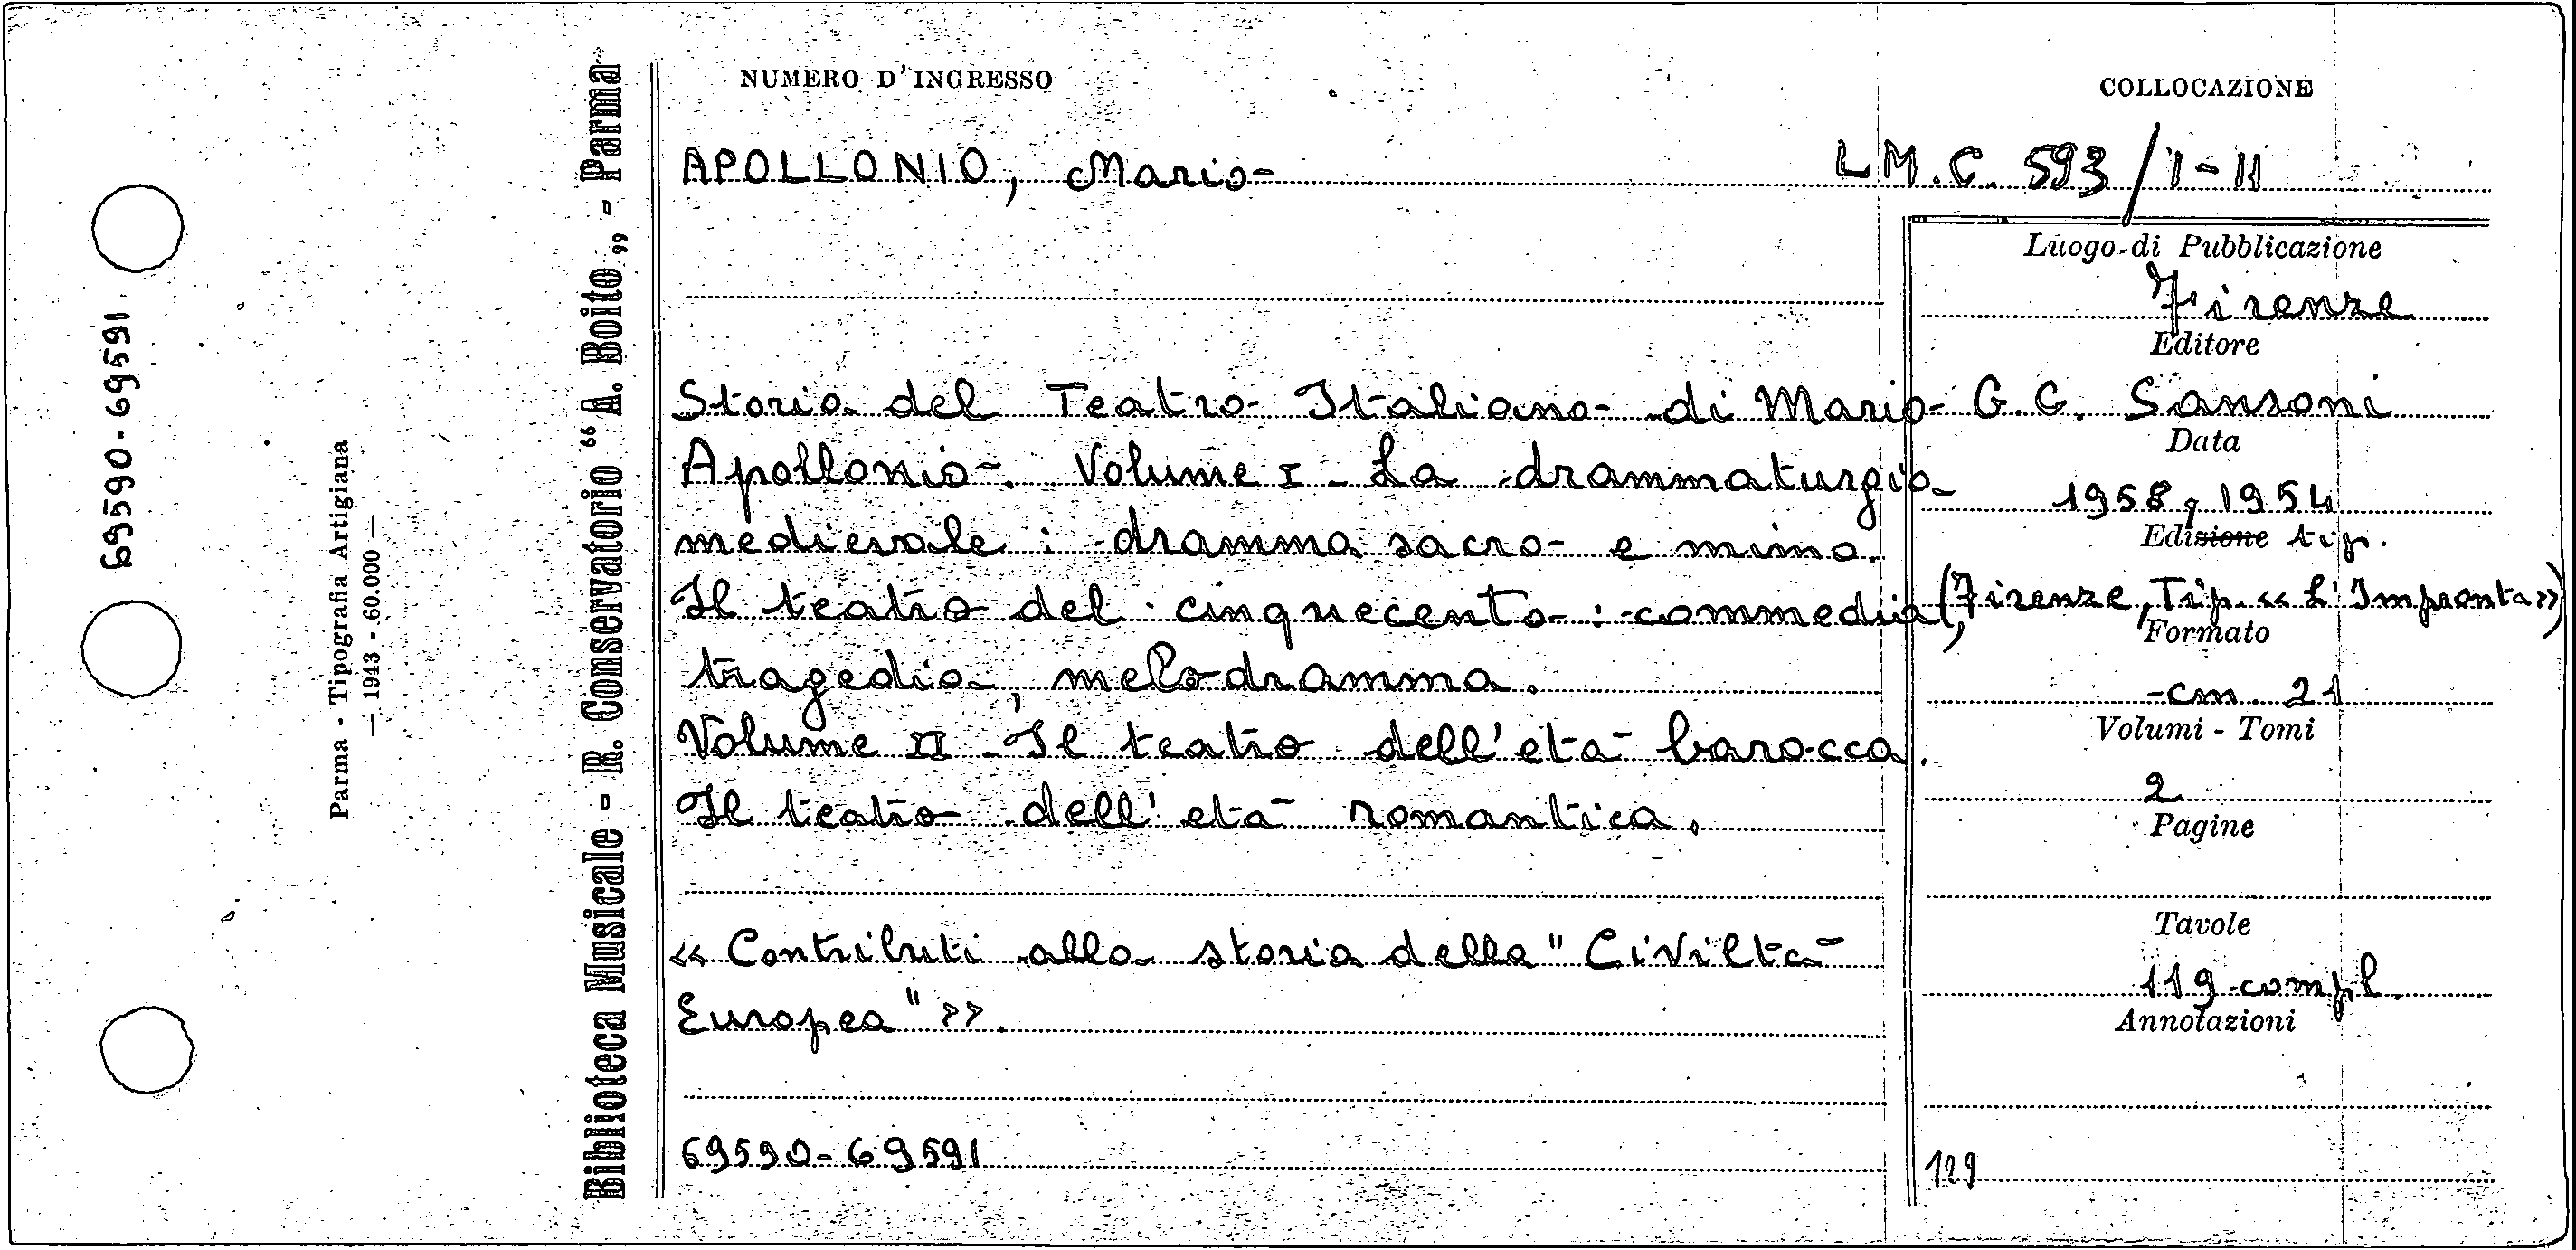 69590-69591
Parma - Tipografia Artigiana
— 1943 - 60.000 —
Biblioteca Musicale - R. Conservatorio “ A. Boito „ - Parma
NUMERO D'INGRESSO
COLLOCAZIONE
APOLLONIO, Mario
L.M.C. 593/I-II
Storia del Teatro Italiano di Mario
Apollonio. Volume I - La drammaturgia
medievale : dramma sacro e mimo.
Il teatro del cinquecento : commedia,
tragedia, melodramma.
Volume II - Il teatro dell'età barocca.
Il teatro dell'età romantica.
« Contributi alla storia della " Civiltà
Europea " ».
69590-69591
Luogo di Pubblicazione
Firenze
Editore
G.C. Sansoni
Data
1958, 1954
Edizione tip.
(Firenze, Tip. « L'Impronta »)
Formato
cm. 21
Volumi - Tomi
2
Pagine
Tavole
119 compl.
Annotazioni
129